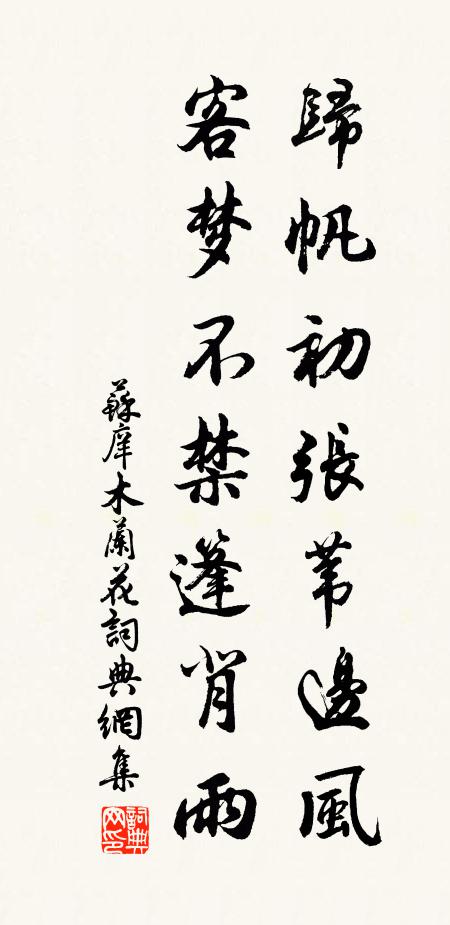 歸帆初張苇邊風
客梦不禁篷背雨
蘇庠木蘭花詞典網集
詞典
网印